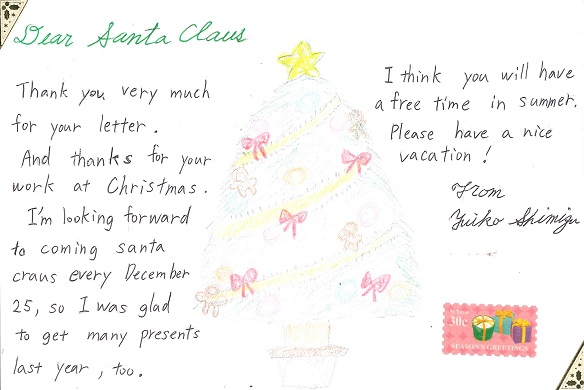 Dear Santa Claus
Thank you very much
for your letter.
And thanks for your
work at Christmas.
I'm looking forward
to coming santa
craus every December
25, so I was glad
to get many presents
last year, too.
I think you will have
a free time in summer.
Please have a nice
vacation!
From
Yuiko Shimizu
30c
SEASON'S GREETINGS